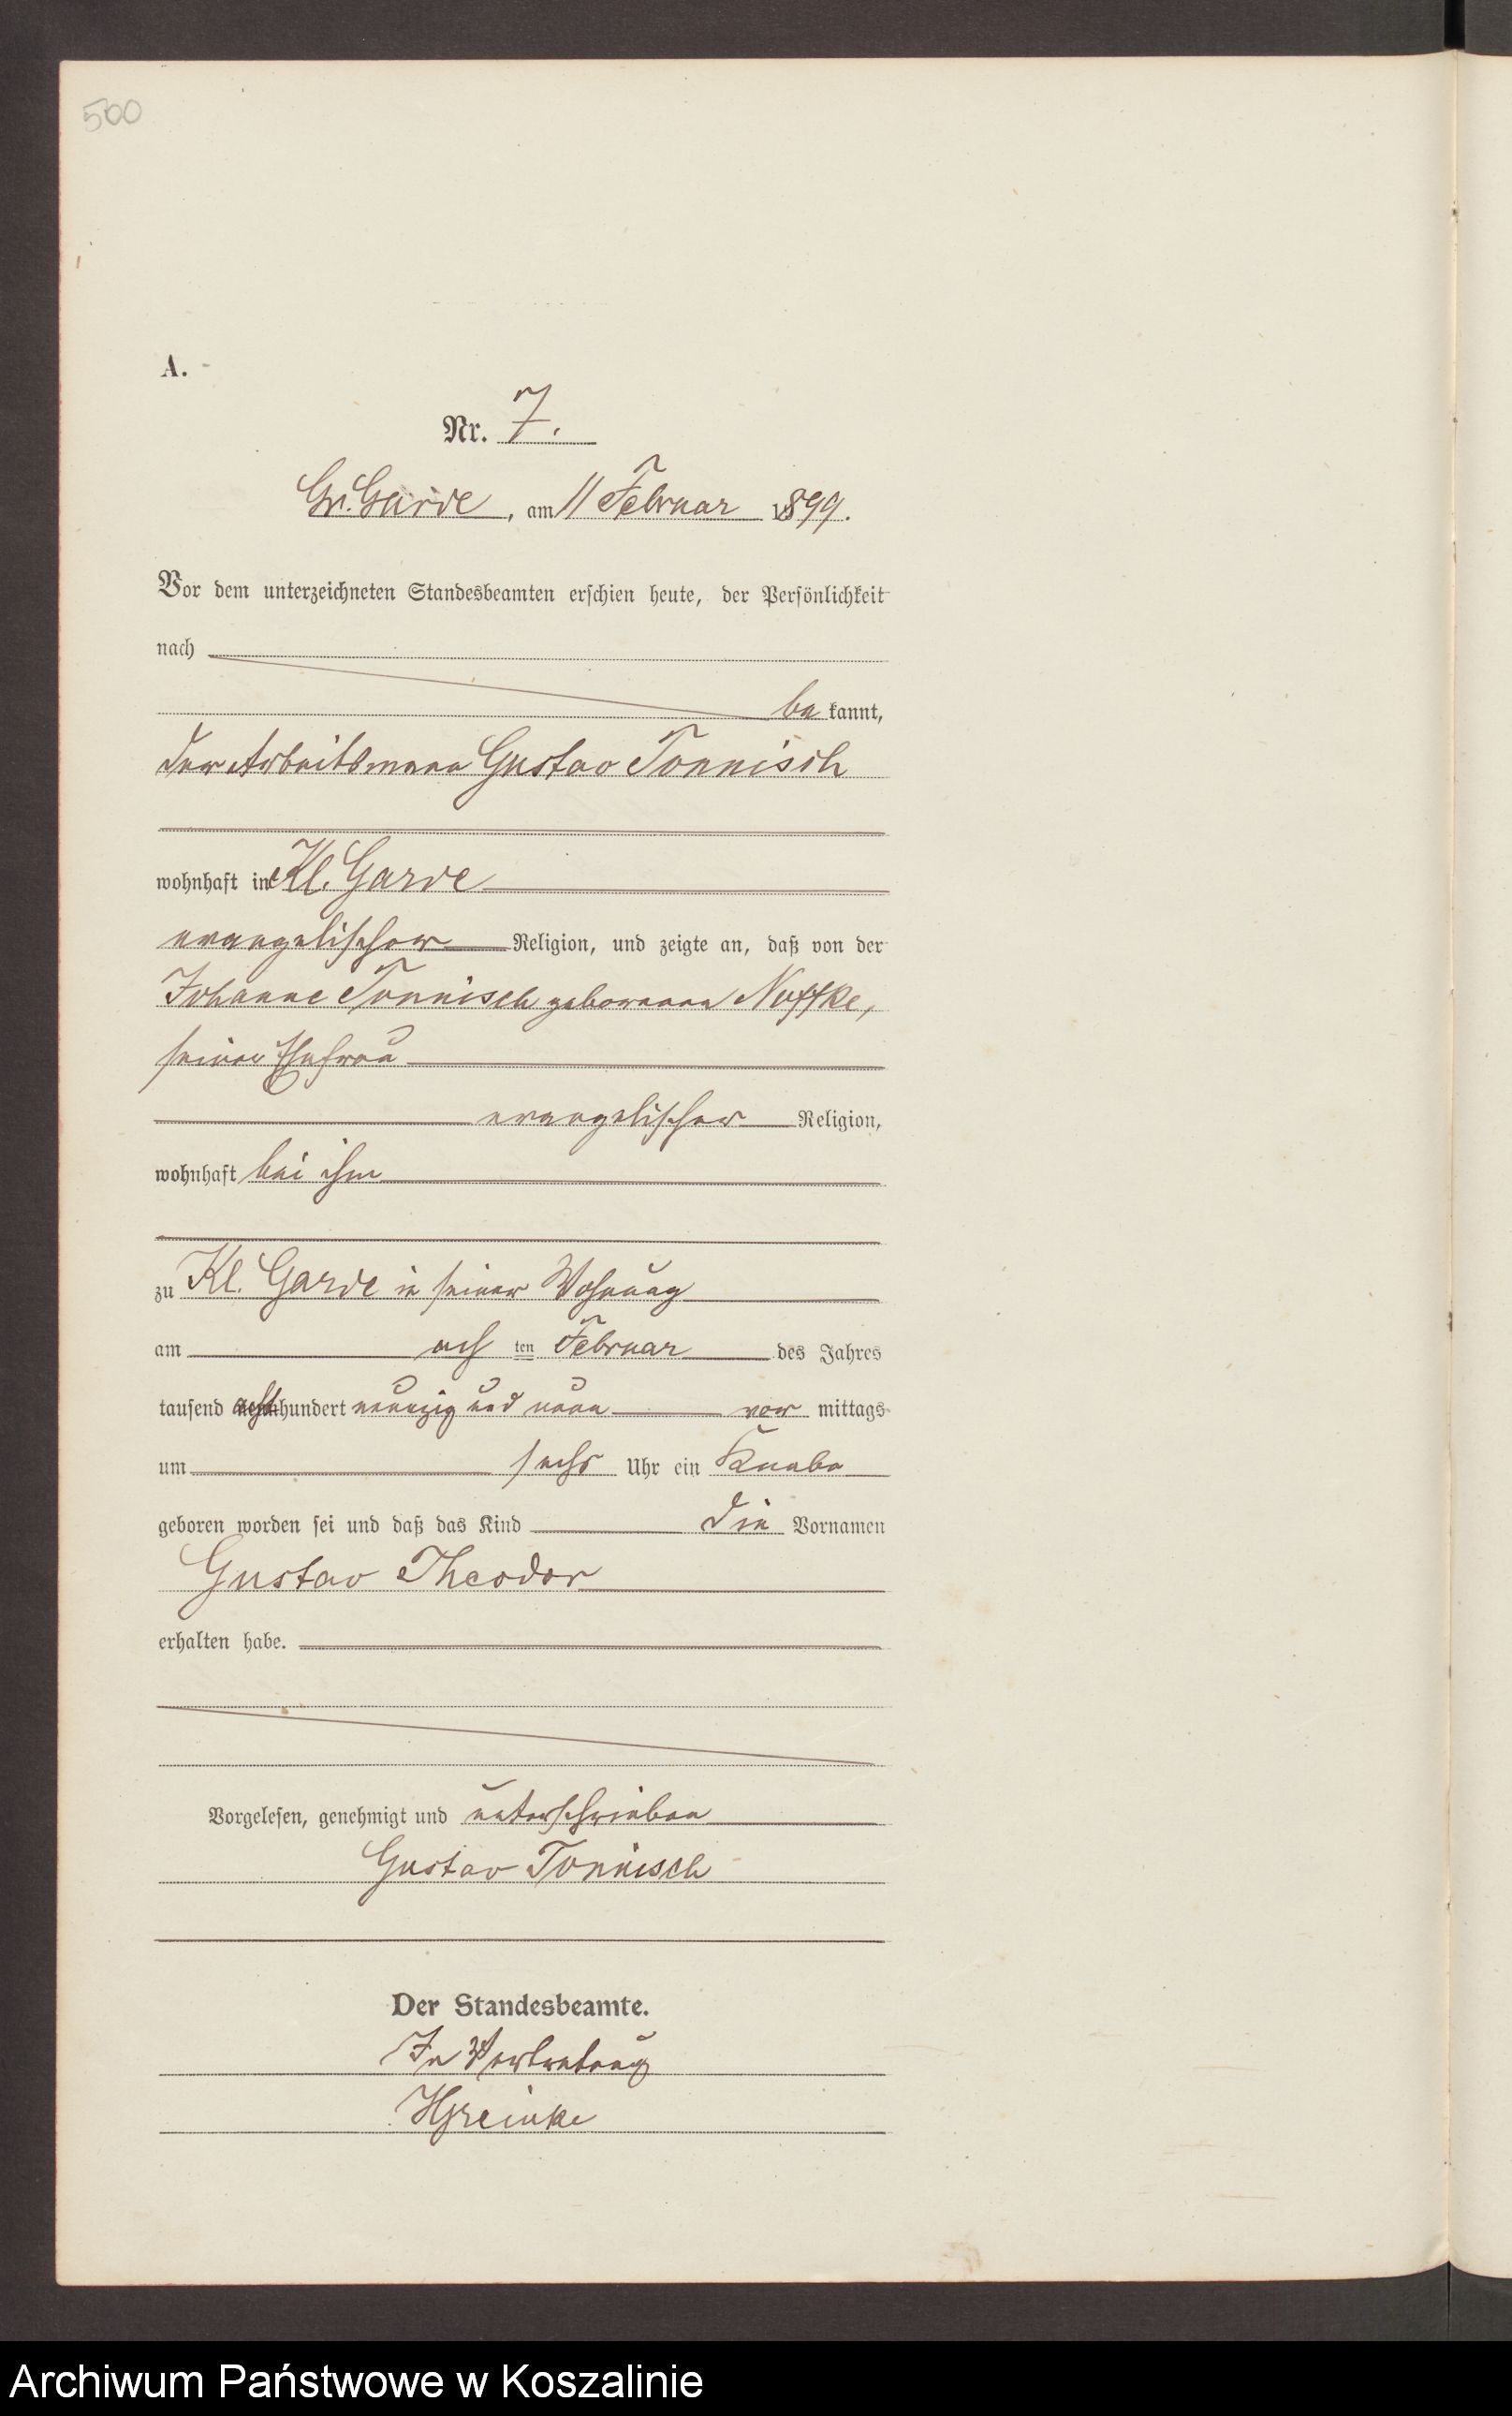 500
A.
Nr. 7.
Gr. Garde, am 11 Februar 1899.
Vor dem unterzeichneten Standesbeamten erschien heute, der Persönlichkeit
nach
be kannt,
der Arbeitsmann Gustav Tonnisch
wohnhaft in Kl. Garde
evangelischer Religion, und zeigte an, daß von der
Johanne Tonnisch geborenen Noffke,
seiner Ehefrau
evangelischer Religion,
wohnhaft bei ihm
zu Kl. Garde in seiner Wohnung
am ach ten Februar des Jahres
tausend acht hundert neunzig und neun vor mittags
um sechs Uhr ein Knabe
geboren worden sei und daß das Kind die Vornamen
Gustav Theodor
erhalten habe.
Vorgelesen, genehmigt und unterschrieben
Gustav Tonnisch
Der Standesbeamte.
In Vertretung
Archiwum Państwowe w Koszalinie